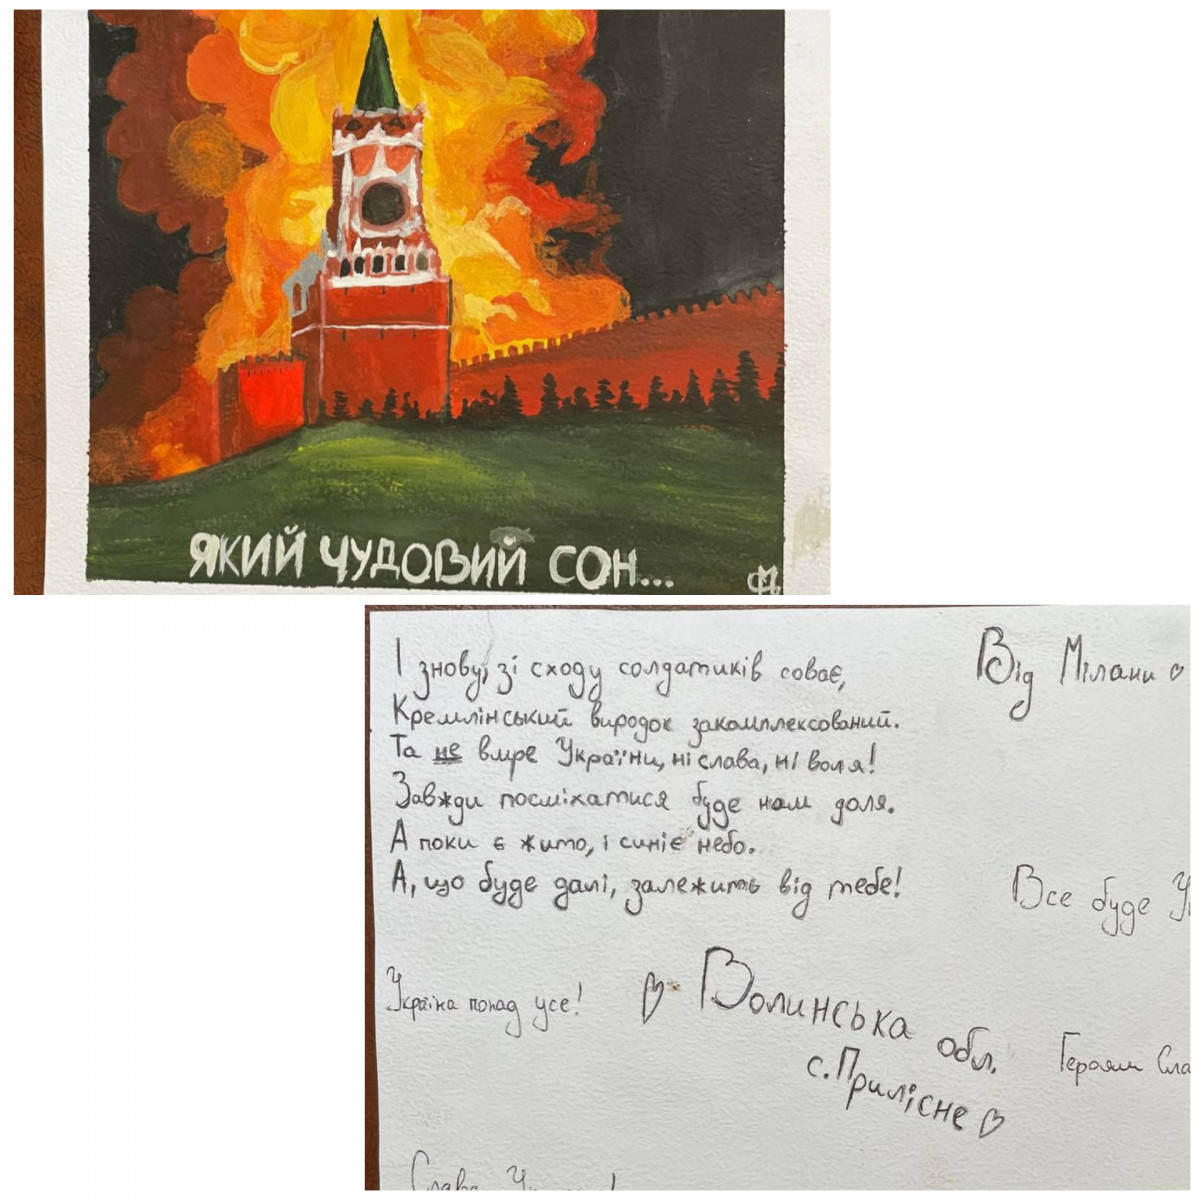 ЯКИЙ ЧУДОВИЙ СОН...
І знову, зі сходу солдатиків соває,
Кремлінський виродок закомплексований.
Та не вмре України, ні слава, ні воля!
Завжди посміхатися буде нам доля.
А поки є жито, і синіє небо.
А, що буде далі, залежить від тебе!
Від Мілани
Все буде
Україна понад усе!
Волинська обл.
с. Прилісне
Героям
Слава